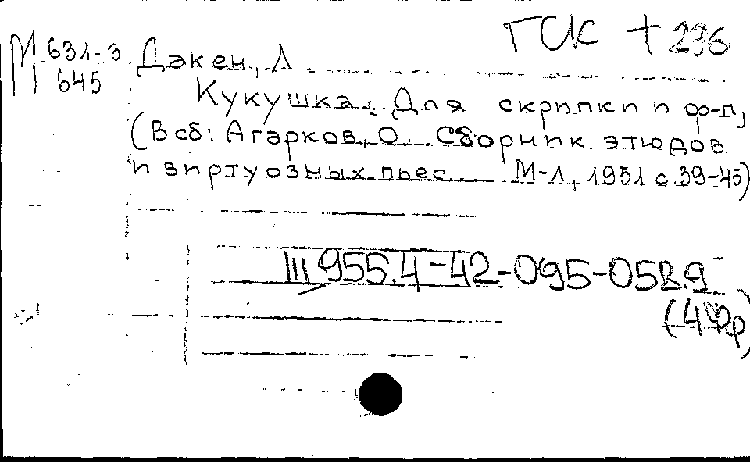 ГСК + 236
М 631-3 Дакен, Л
645
Кукушка. Для скрипки и ф-п,
(В сб: Агарков, О. Сборник этюдов
и виртуозных пьес М-Л, 1951 с.39-45)
III 955.4-42-095-058.9